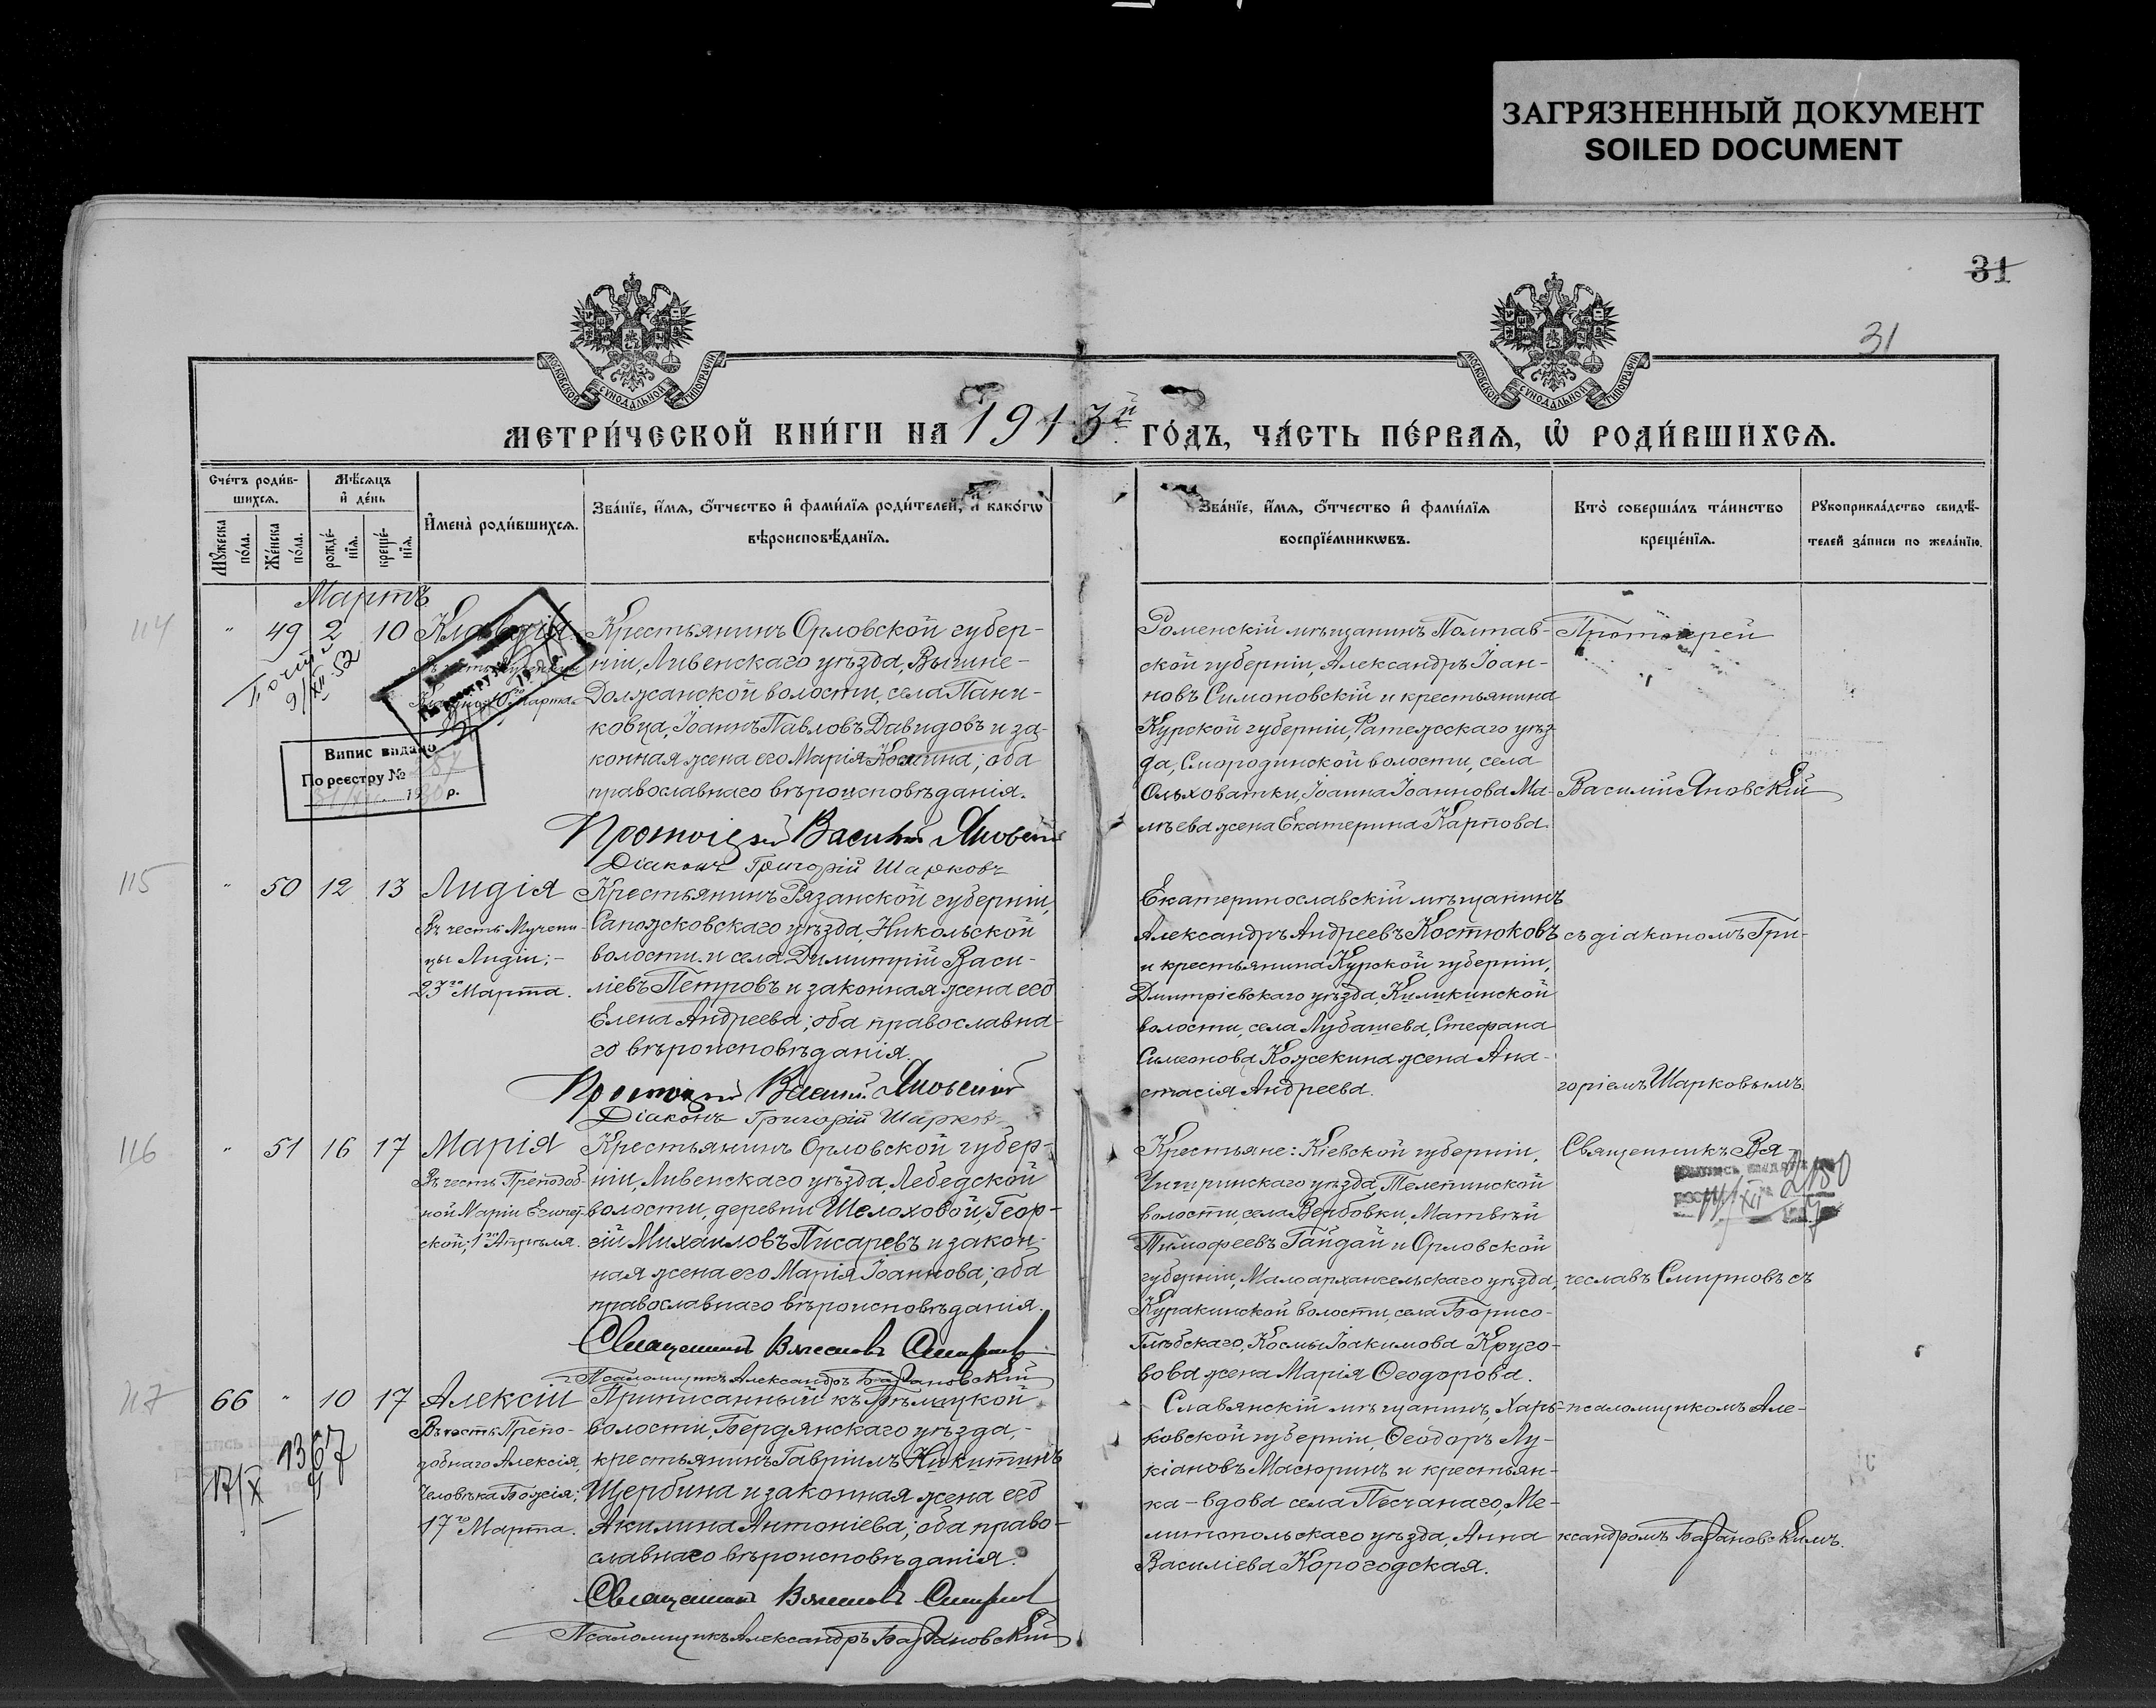 ЗАГРЯЗНЕННЫЙ ДОКУМЕНТ
SOILED DOCUMENT
31
31
МОСКОВСКОЙ СѴНОДАЛЬНОЙ ТИПОГРАФІИ
МОСКОВСКОЙ СѴНОДАЛЬНОЙ ТИПОГРАФІИ
МЕТРИ́ЧЕСКОЙ КНИ́ГИ НА 1913й ГО́ДЪ, ЧА́СТЬ ПЕ́РВАѦ, Ѡ҆ РОДИ́ВШИХСѦ.
Сче́тъ роди́в-
шихсѧ.
Мѣ́сѧцъ
и҆ де́нь
Мꙋ́жеска по́ла.
Же́нска по́ла.
рожде́-
нїѧ.
креще́-
нїѧ.
И҆мена̀ роди́вшихсѧ.
Зва́нїе, и҆́мѧ, ѻ҆́тчество и҆ фами́лїѧ роди́телей, и҆ како́гѡ
вѣроисповѣ́данїѧ.
Зва́нїе, и҆́мѧ, ѻ҆́тчество и҆ фами́лїѧ
воспрїе́мникѡвъ.
Кто̀ соверша́лъ та́инство
креще́нїѧ.
Рꙋкоприкла́дство свидѣ́-
телей за́писи по жела́нїю.
Мартъ
114
" 49 2 10 Клавдія
9/XII 52
Марта
Випис видано
По реєстру №
19 р.
Крестьянинъ Орловской губер-
ніи, Ливенскаго уѣзда, Вышне-
Должанской волости, села Пани-
ковца, Іоаннъ Павловъ Давидовъ и за-
конная жена его Марія Космина; оба
православнаго вѣроисповѣданія.
Протоіерей Василій Яновскій
Діаконъ Григорій Шарковъ
Роменскій мѣщанинъ Полтав-
ской губерніи, Александръ Іоан-
новъ Симоновскій и крестьянина
Курской губерніи, Фатежскаго уѣз-
да, Смородинской волости, села
Ольховатки, Іоанна Іоаннова Ма-
мѣева жена Екатерина Карпова.
Протоіерей
Василій Яновскій
115
" 50 12 13 Лидія
Въ честь Мучени-
цы Лидіи;-
23го Марта.
Крестьянинъ Рязанской губерніи,
Сапожсковскаго уѣзда, Никольской
волости и села Димитрій Васи-
ліевъ Петровъ и законная жена его
Елена Андреева; оба православна-
го вѣроисповѣданія.
Протоіерей Василій Яновскій
Діаконъ Григорій Шарковъ
Екатеринославскій мѣщанинъ
Александръ Андреевъ Костюковъ
и крестьянина Курской губерніи,
Дмитріевскаго уѣзда, Киликинской
волости, села Лубашева, Стефана
Симеонова Кожекина жена Ана-
стасія Андреева.
съ діакономъ Гри-
горіемъ Шарковымъ
116
" 51 16 17 Марія
Въ честь Преподоб-
ной Маріи Египет-
ской; 1го Апрѣля.
Крестьянинъ Орловской губер-
ніи, Ливенскаго уѣзда, Лебедской
волости, деревни Шелоховой, Геор-
гій Михаиловъ Писаревъ и закон-
ная жена его Марія Іоаннова; оба
православнаго вѣроисповѣданія.
Священникъ Вячеславъ Смирновъ
Псаломщикъ Александръ Базановскій
Крестьяне: Кіевской губерніи,
Чигиринскаго уѣзда, Телепинской
волости, села Вербовки, Матвѣй
Тимофеевъ Гайдай и Орловской
губерніи, Малоархангельскаго уѣзда,
Куракинской волости, села Борисо-
Глѣбскаго, Космы Іоакимова Круго-
вова жена Марія Ѳеодорова.
Священникъ Вя-
2180
чеславъ Смирновъ съ
117
66 " 10 17 Алексій
1367
17/X
Въ честь Препо-
добнаго Алексія,
Человѣка Божія;
17го Марта.
Приписанный къ
волости, Бердянскаго уѣзда,-
крестьянинъ Гавріилъ Никитинъ
Щербина и законная жена его
Акилина Антоніева; оба право-
славнаго вѣроисповѣданія.
Священникъ Вячеславъ Смирновъ
Псаломщикъ Александръ Базановскій
Славянскій мѣщанинъ, Харь-
ковской губерніи, Ѳеодоръ Лу-
кіановъ Масюринъ и крестьян-
ка-вдова села Песчанаго, Ме-
литопольскаго уѣзда, Анна
Василіева Корогодская.
псаломщикомъ Але-
ксандромъ Базановскимъ.